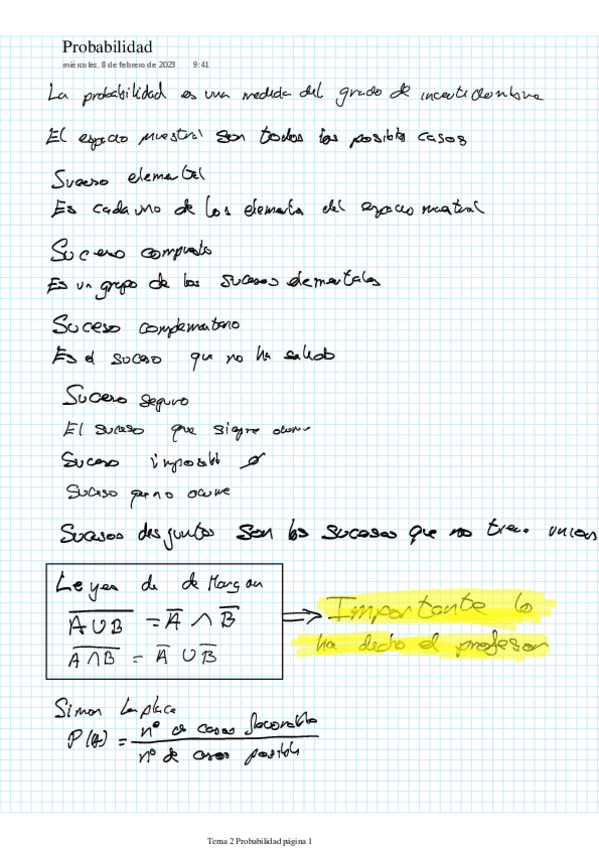 Probabilidad
miércoles, 8 de febrero de 2023 9:41
La probabilidad es una medida del grado de incertidumbre
El espacio muestral son todos los posibles casos
Suceso elemental
Es cada uno de los elementos del espacio muestral
Suceso compuesto
Es un grupo de los sucesos elementales
Suceso complementario
Es el suceso que no ha salido
Suceso seguro
El suceso que siempre ocurre
Suceso imposible ∅
Suceso que no ocurre
Sucesos disjuntos son los sucesos que no tienen union
Leyes de de Morgan
\overline{A∪B} = \overline{A} ∩ \overline{B} ⇒ Importante lo
\overline{A∩B} = \overline{A} ∪ \overline{B} ha dicho el profesor
Simon Laplace
P(A) = nº de casos favorables
nº de casos posibles
Tema 2 Probabilidad página 1